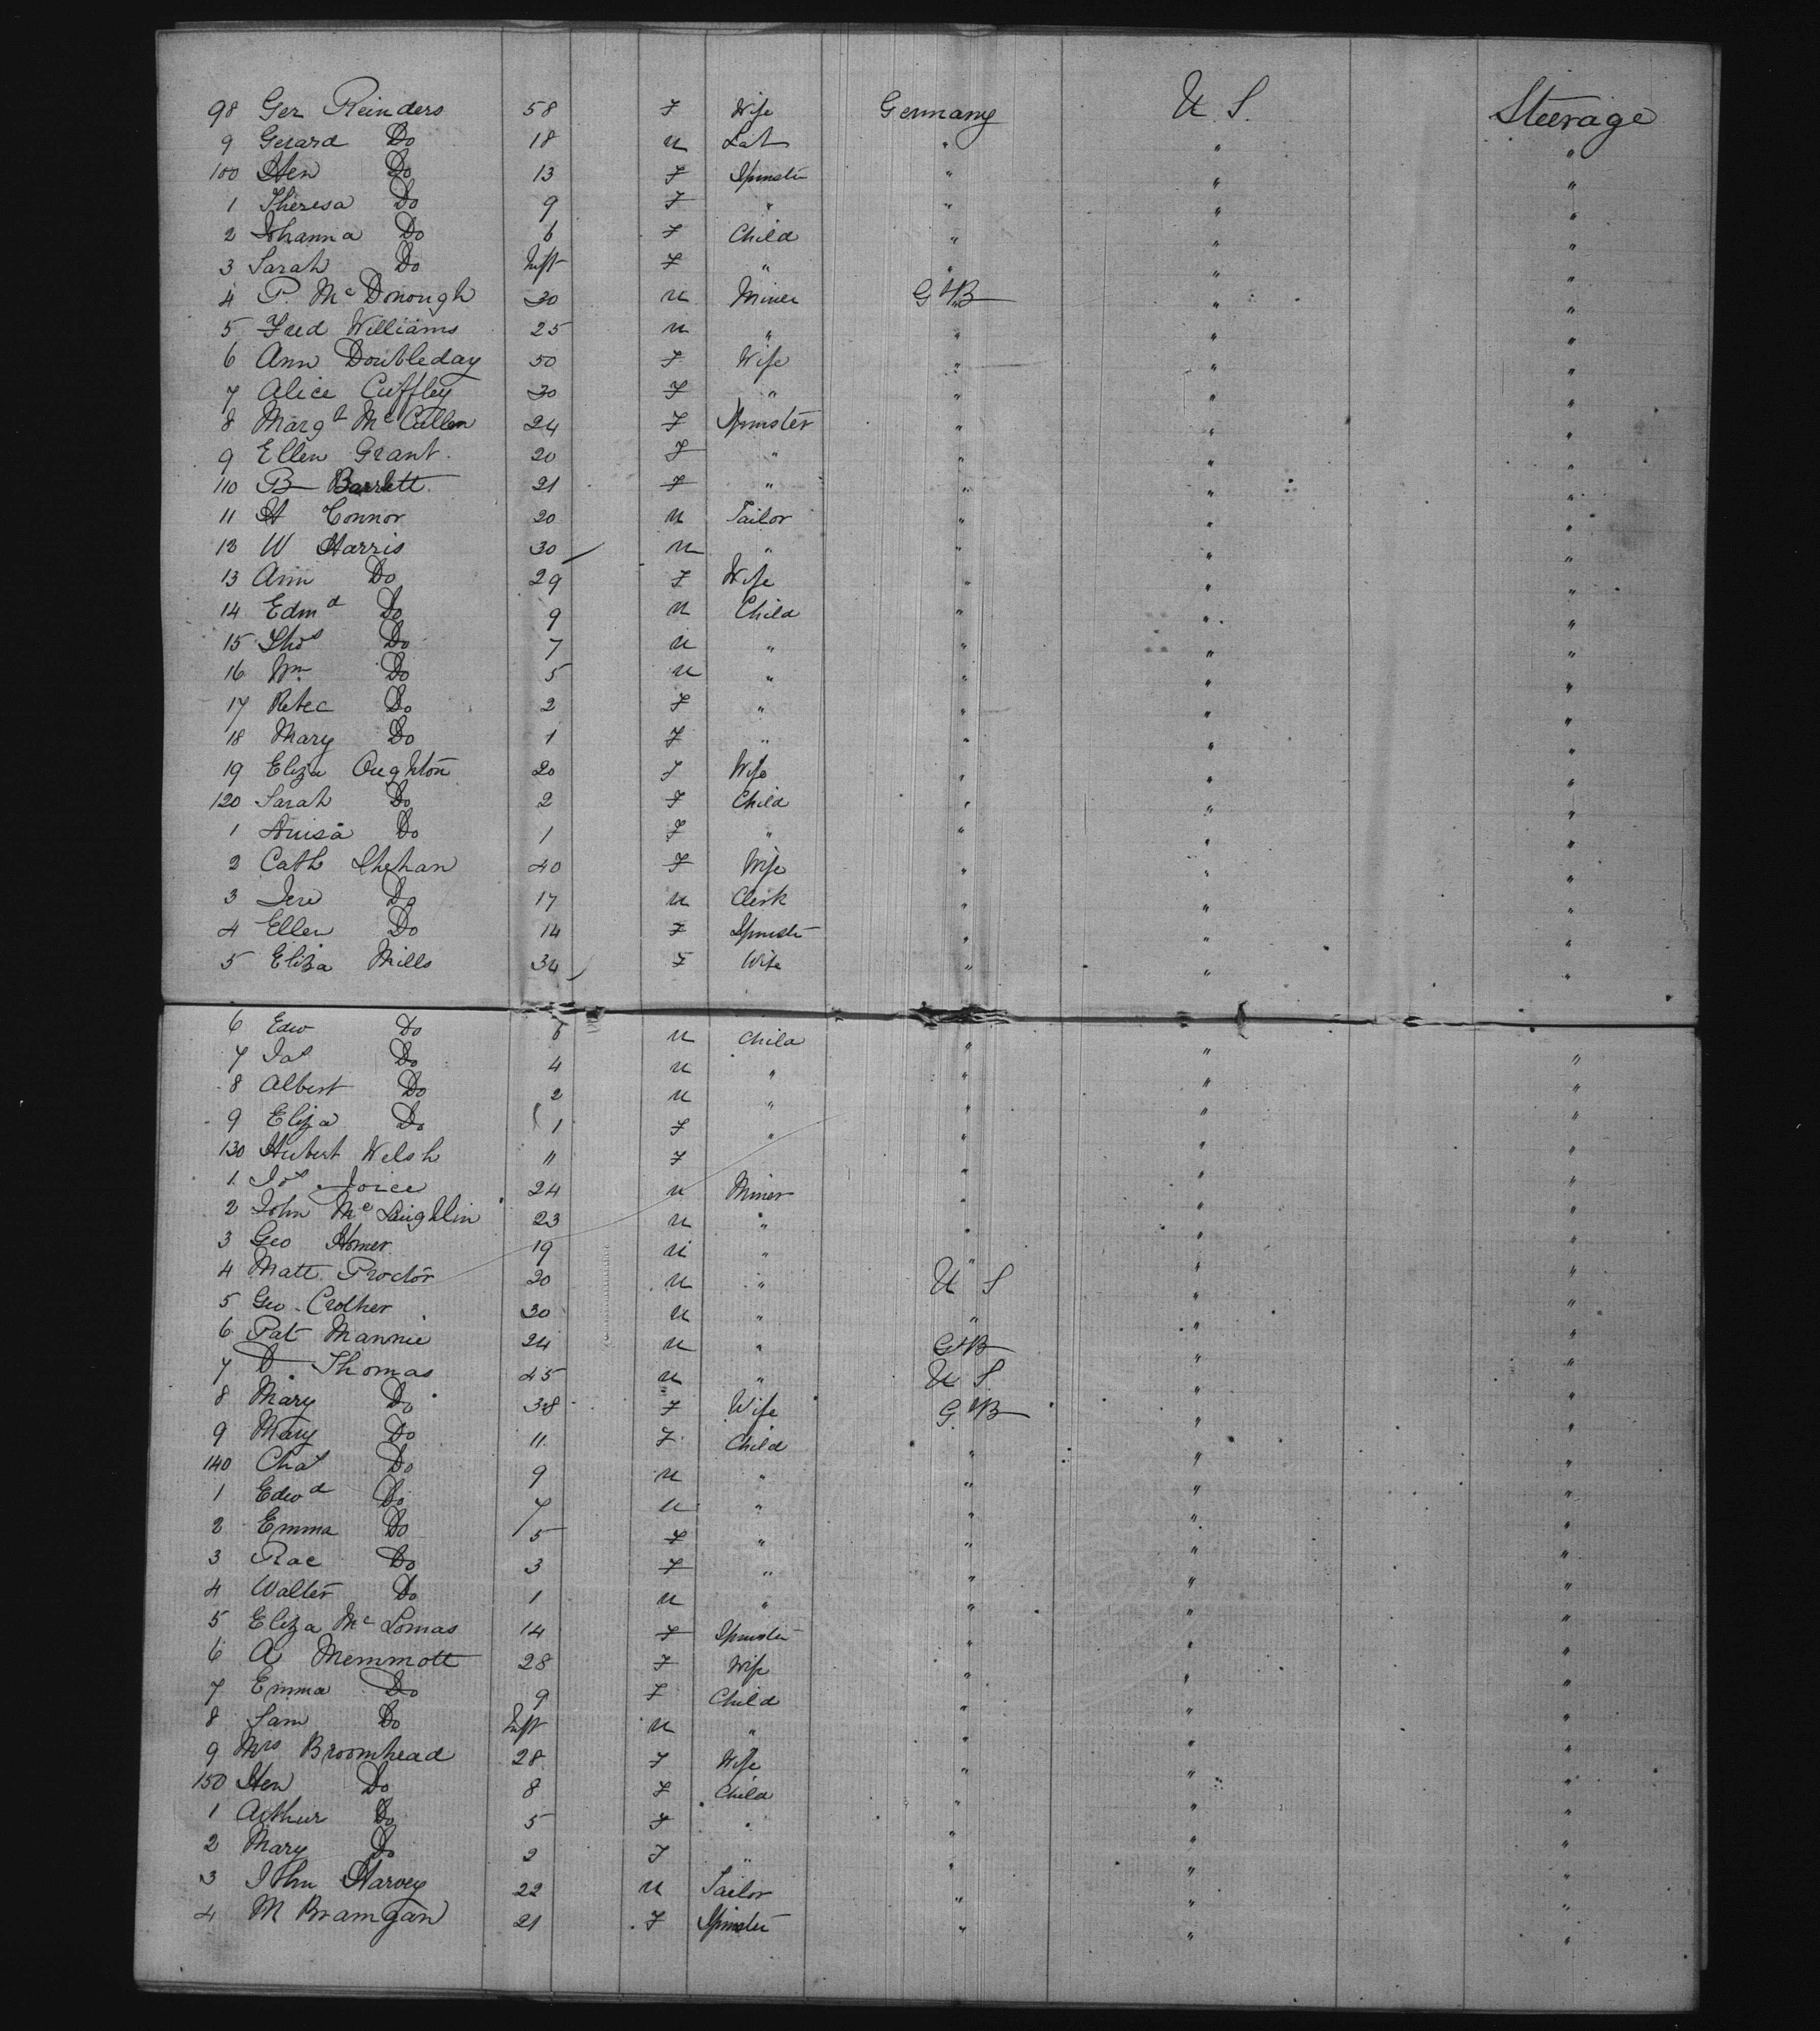 98 Ger Reinders 58 F Wife Germany U.S. Steerage
9 Gerard Do 18 M Lab " " "
100 Hen Do 13 F Spinster " " "
1 Theresa Do 9 F " " " "
2 Johanna Do 6 F Child " " "
3 Sarah Do Inft F " " " "
4 P. McDonough 30 M Miner G+B " "
5 Fred Williams 25 M " " " "
6 Ann Doubleday 50 F Wife " " "
7 Alice Cuffley 30 F " " " "
8 Margt McCullen 24 F Spinster " " "
9 Ellen Grant 20 F " " " "
110 B Barrett 21 F " " " "
11 H Connor 20 M Tailor " " "
12 W Harris 30 M " " " "
13 Ann Do 29 F Wife " " "
14 Edmd Do 9 M Child " " "
15 Thos Do 7 M " " " "
16 Wm Do 5 M " " " "
17 Rebec Do 2 F " " " "
18 Mary Do 1 F " " " "
19 Eliza Oughton 20 F Wife " " "
120 Sarah Do 2 F Child " " "
1 Louisa Do 1 F " " " "
2 Cath Shehan 40 F Wife " " "
3 Jere Do 17 M Clerk " " "
4 Ellen Do 14 F Spinster " " "
5 Eliza Mills 34 F Wife " " "
6 Edw Do M Child " " "
7 Jas Do 4 M " " " "
8 Albert Do 2 M " " " "
9 Eliza Do 1 F " " " "
130 Hubert Welsh 11 F " " "
1 Jos Joice 24 M Miner " " "
2 John McLaughlin 23 M " " " "
3 Geo Homer 19 M " " " "
4 Matt Proctor 20 M " U S " "
5 Geo Crother 30 M " " " "
6 Pat Mannie 24 M " G+B " "
7 D. Thomas 45 M " U S " "
8 Mary Do 38 F Wife G+B " "
9 Mary Do 11 F Child " " "
140 Chas Do 9 M " " " "
1 Edwd Do 7 M " " " "
2 Emma Do 5 F " " " "
3 Rae Do 3 F " " " "
4 Walter Do 1 M " " " "
5 Eliza McLomas 14 F Spinster " " "
6 A Memmott 28 F Wife " " "
7 Emma Do 9 F Child " " "
8 Sam Do Inft M " " " "
9 Mrs Broomhead 28 F Wife " " "
150 Hen Do 8 F Child " " "
1 Arthur Do 5 F " " " "
2 Mary Do 2 F " " " "
3 John Harvey 22 M Tailor " " "
4 M Bramgan 21 F Spinster " " "